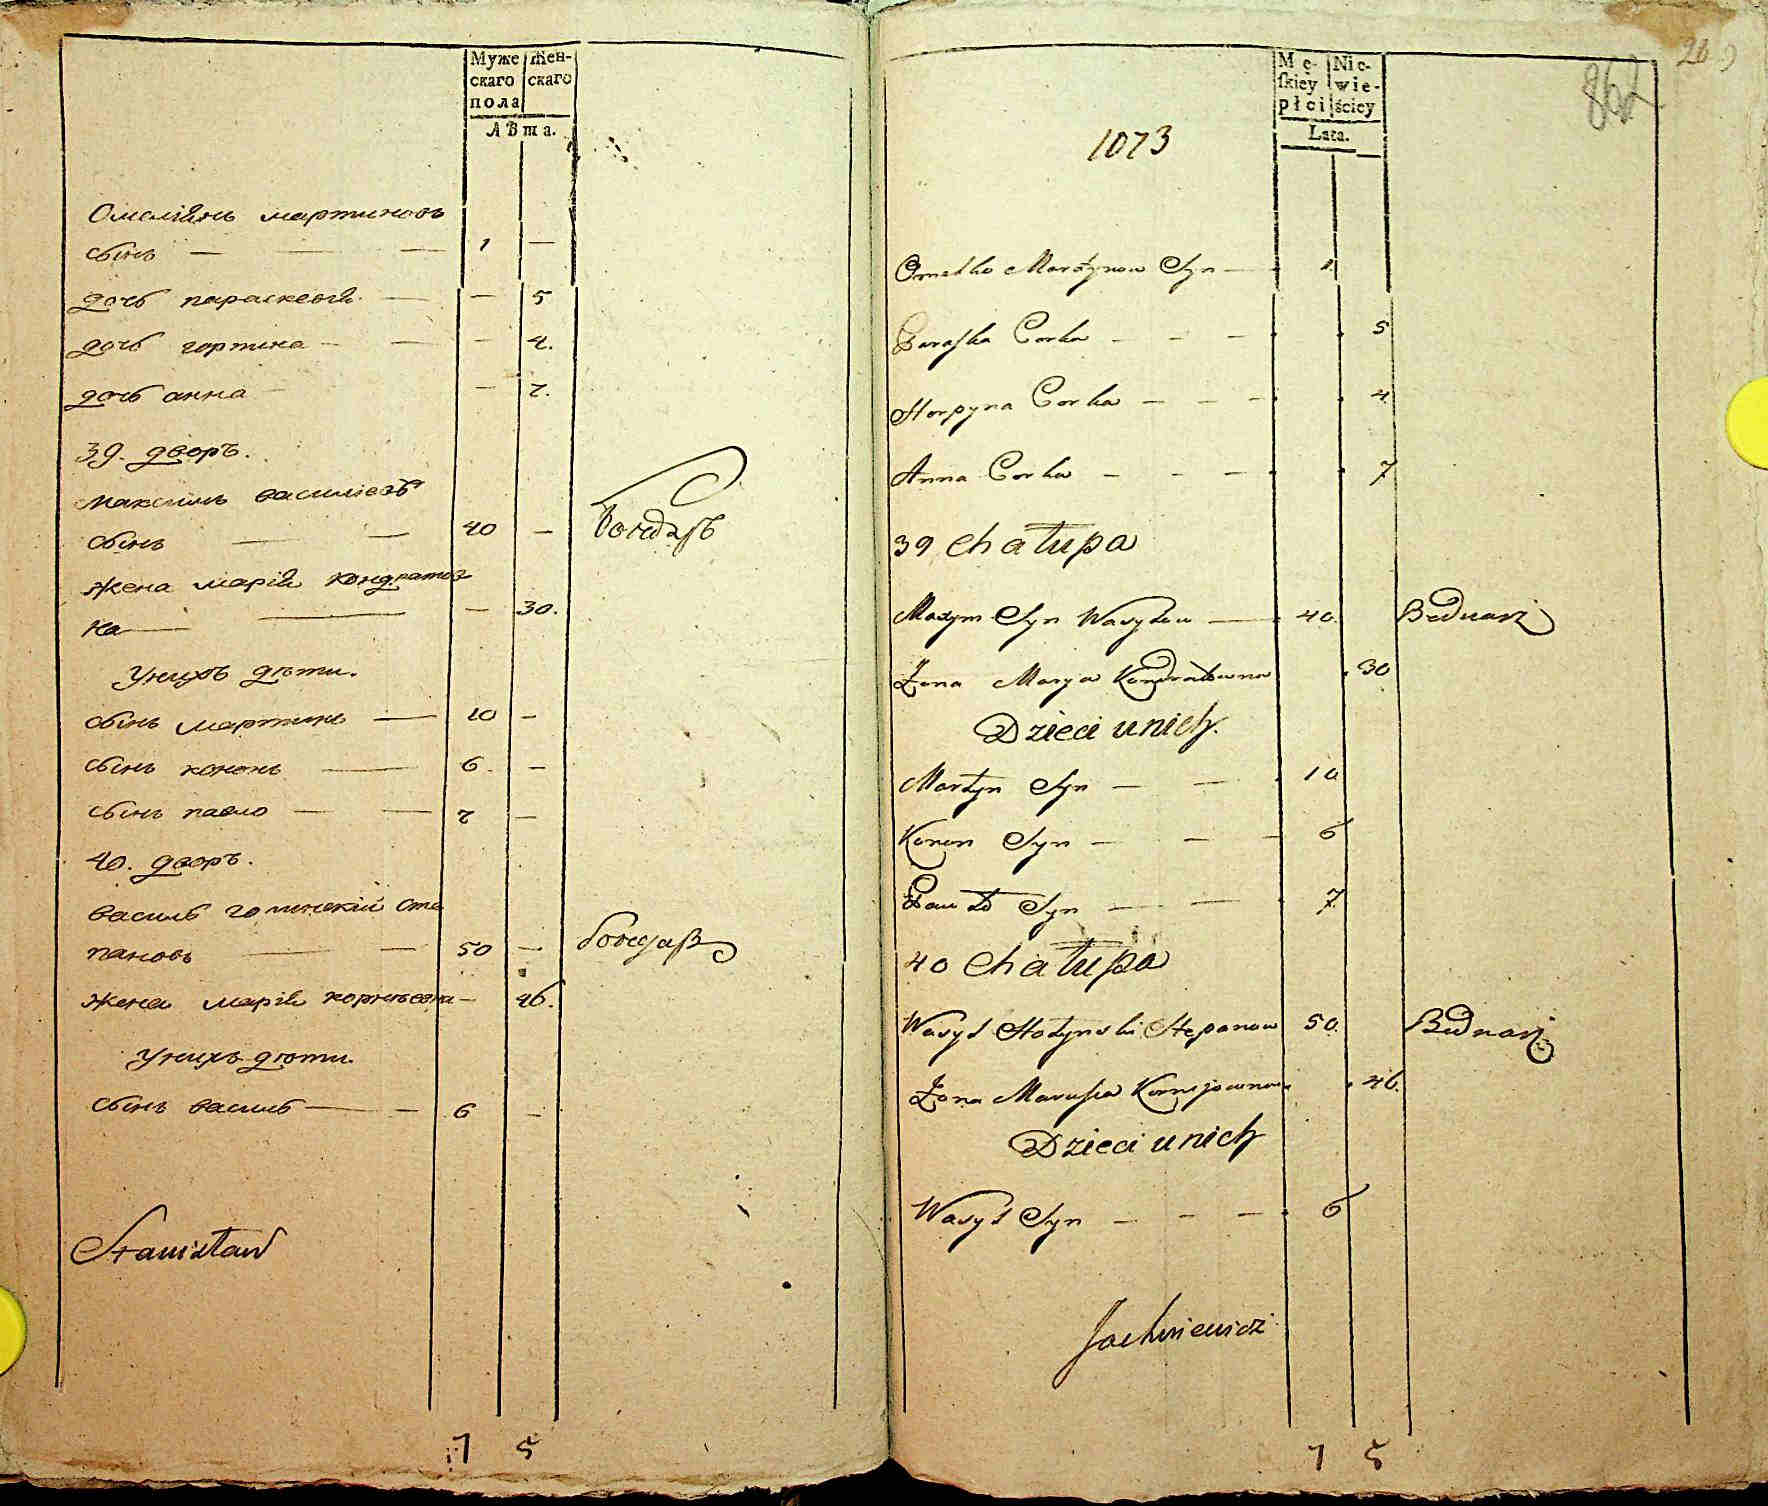 Муже Жен-
скаго скаго
пола
Лѣта.
Омеліянъ мартиновъ
сынъ — — — 1 —
дочь параскевія — — 5
дочь горпина — — — 4.
дочь анна — — 7.
39. дворъ.
максимъ василіевъ
сынъ — — 40 — бондарь
жена марія кондратов
на — — — 30.
Унихъ дѣти.
сынъ мартинъ — 10 —
сынъ кононъ — 6. —
сынъ павло — — 7 —
40. дворъ.
василь голинскій сте
пановъ — — 50 — бондарь
жена марія корнѣевна — 46.
Унихъ дѣти.
сынъ василь — — 6 —
Stanisław
7 5
209
862
Mę- Nie-
skiey wie-
płci ściey
Lata.
1073
Omelko Martynow Syn — 1
Paraska Corka — — — 5
Horpyna Corka — — — 4
Anna Corka — — — 7
39 Chałupa
Maxym Syn Wasylow — 40. Bednarz
Żona Marya Kondratowna 30
Dzieci unich.
Martyn Syn — — 10
Konon Syn — — — 6
Pawło Syn — — 7
40 Chałupa
Wasyl Hołynski Stepanow 50. Bednarz
Żona Marusia Korniiowna 46.
Dzieci unich
Wasyl Syn — — — 6
Jachniewicz
7 5